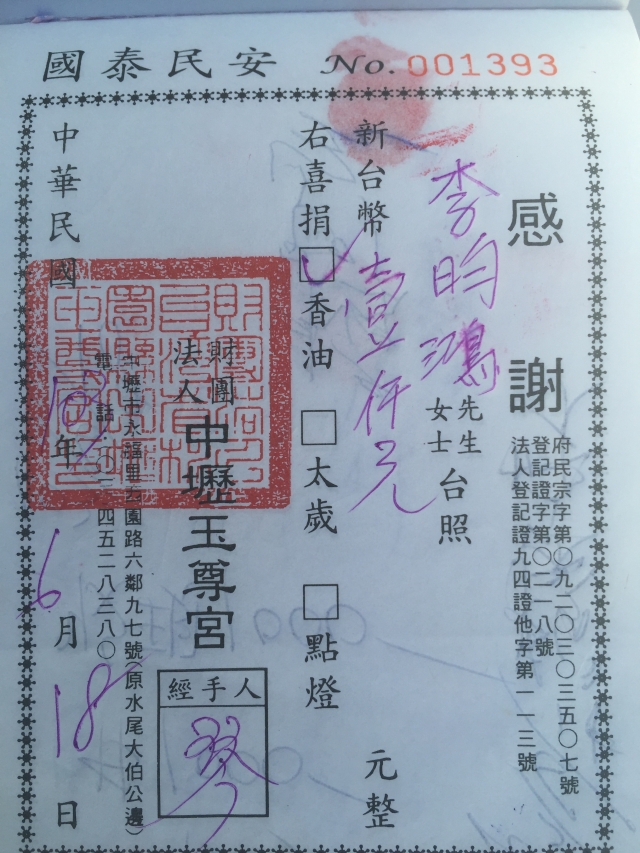 國泰民安 No. 001393
感謝
府民宗字第〇九二〇三〇三五〇七號
登記證字第〇二一八號
法人登記證九四證他字第一一三號
李昀鴻 先生 女士 台照
新台幣壹仟元 元整
右喜捐 ☑香油 □太歲 □點燈
財團法人 中壢玉尊宮
經手人
中壢市永福里 園路六鄰九七號(原水尾大伯公邊)
電話 四五二八三八〇
中華民國 年6月18日